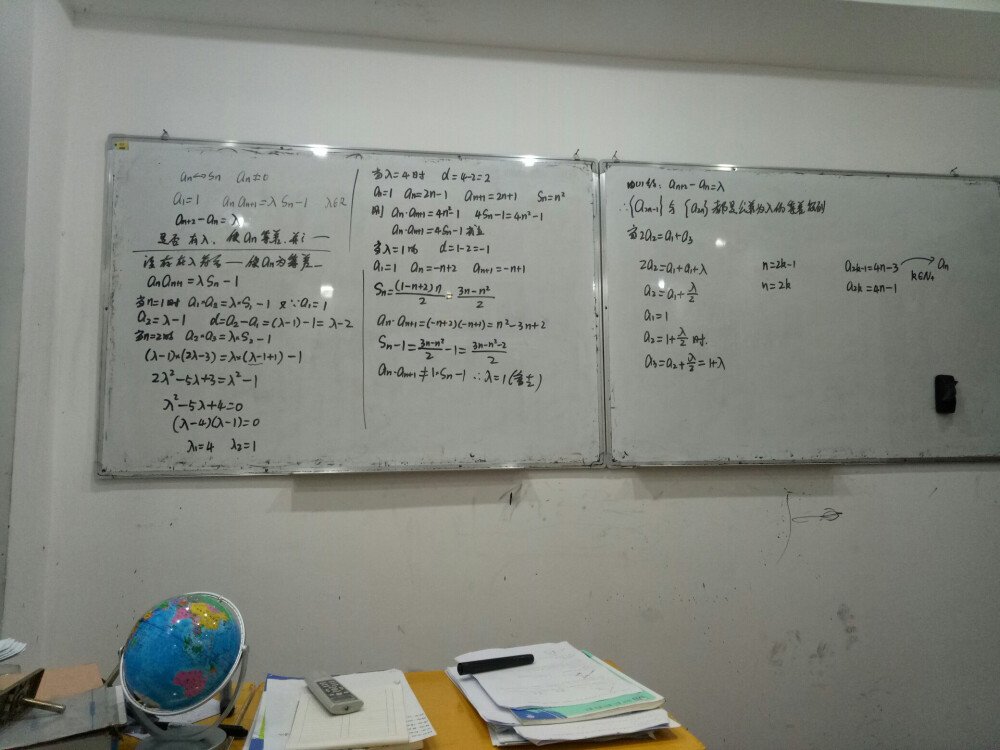 an⇔Sn an≠0
a₁=1 anan+1=λSn-1 λ∈R
an+2-an=λ
是否存入、使an等差、并i一
anan+1=λSn-1
当n=1时 a₁·a₂=λ·S₁-1 又∵a₁=1
a₂=λ-1 d=a₂-a₁=(λ-1)-1=λ-2
当n=2时 a₂·a₃=λ·S₂-1
(λ-1)·(2λ-3)=λ·(λ-1+1)-1
2λ²-5λ+3=λ²-1
λ²-5λ+4=0
(λ-4)(λ-1)=0
λ₁=4 λ₂=1
当λ=4时 d=4-2=2
a₁=1 an=2n-1 an+1=2n+1 Sn=n²
则 an·an+1=4n²-1 4Sn-1=4n²-1
an·an+1=4Sn-1 成立
当λ=1时 d=1-2=-1
a₁=1 an=-n+2 an+1=-n+1
Sn=(1-n+2)n/2=3n-n²/2
an·an+1=(-n+2)(-n+1)=n²-3n+2
Sn-1=3n-n²/2-1=3n-n²-2/2
an·an+1≠1·Sn-1 ∴λ=1(舍去)
an+2-an=λ
∴{a2n-1}与{a2n}都是公差为λ的等差数列
当2a₂=a₁+a₃
2a₂=a₁+a₁+λ n=2k-1 a2k-1=4n-3 k∈N+ an
a₂=a₁+λ/2 n=2k a2k=4n-1
a₁=1
a₂=1+λ/2 时.
a₃=a₂+λ/2=1+λ